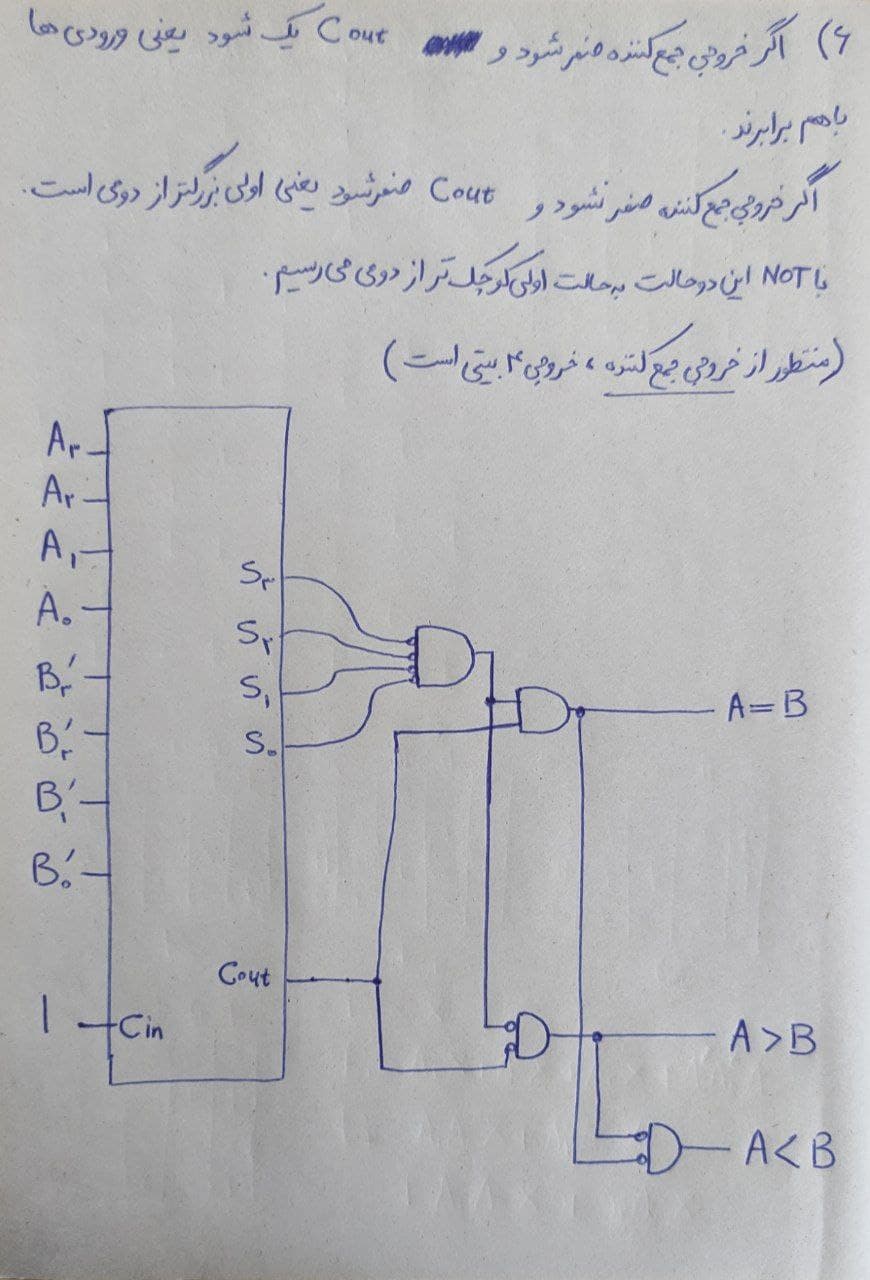 ۶) اگر خروجی جمع کننده صفر شود و Cout یک شود یعنی ورودی ها
باهم برابرند.
اگر خروجی جمع کننده صفر نشود و Cout صفر شود یعنی اولی بزرگتر از دومی است.
با NOT این دو حالت به حالت اولی کوچک تر از دومی می رسیم.
(منظور از خروجی جمع کننده، خروجی ۴ بیتی است)
A۳
A۲
A۱
A۰
B۳′
B۲′
B۱′
B۰′
1
Cin
S۳
S۲
S۱
S۰
Cout
A=B
A>B
A<B